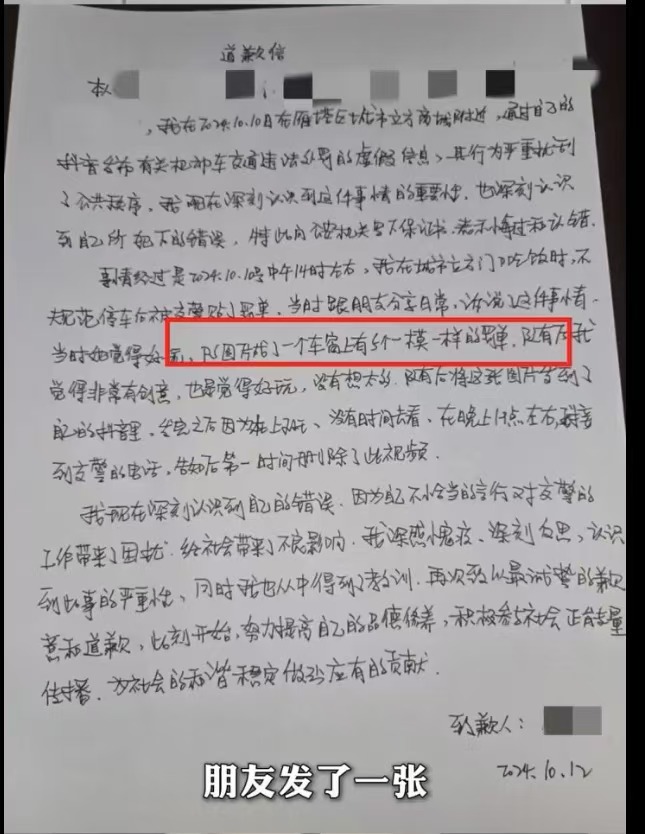 道歉信
本人
，我在2024.10.10日在雁塔区城市立方商城附近，通过自己的
抖音发布有关机动车交通违法处罚的虚假信息，其行为严重扰乱
了公共秩序，我现在深刻认识到这件事情的重要性，也深刻认识
到自己所犯下的错误，特此向公安机关写下保证书，表示悔过和认错.
事情经过是2024.10.10号中午14时左右，我在城市立方门口吃饭时，不
规范停车后被交警贴了罚单，当时跟朋友分享日常，诉说了这件事情.
当时她觉得好 ，PS图片贴了一个车窗上有5个一模一样的罚单，随后我
觉得非常有创意，也是觉得好玩，没有想太多，随后将这张图片发到了
自己的抖音里，发完之后因为在上班、没有时间去看、在晚上 点左右，接
到交警的电话，告知后第一时间删除了此视频.
我现在深刻认识到自己的错误，因为自己不恰当的言行对交警的
工作带来了困扰，给社会带来了不良影响，我深感愧疚、深刻反思，认识
到此事的严重性、同时我也从中得到了教训，再次致以最诚挚的歉
意和道歉，此刻开始，努力提高自己的品德修养，积极参与社会正能量
传播，为社会的和谐稳定做出应有的贡献.
致歉人：
2024.10.12
朋友发了一张